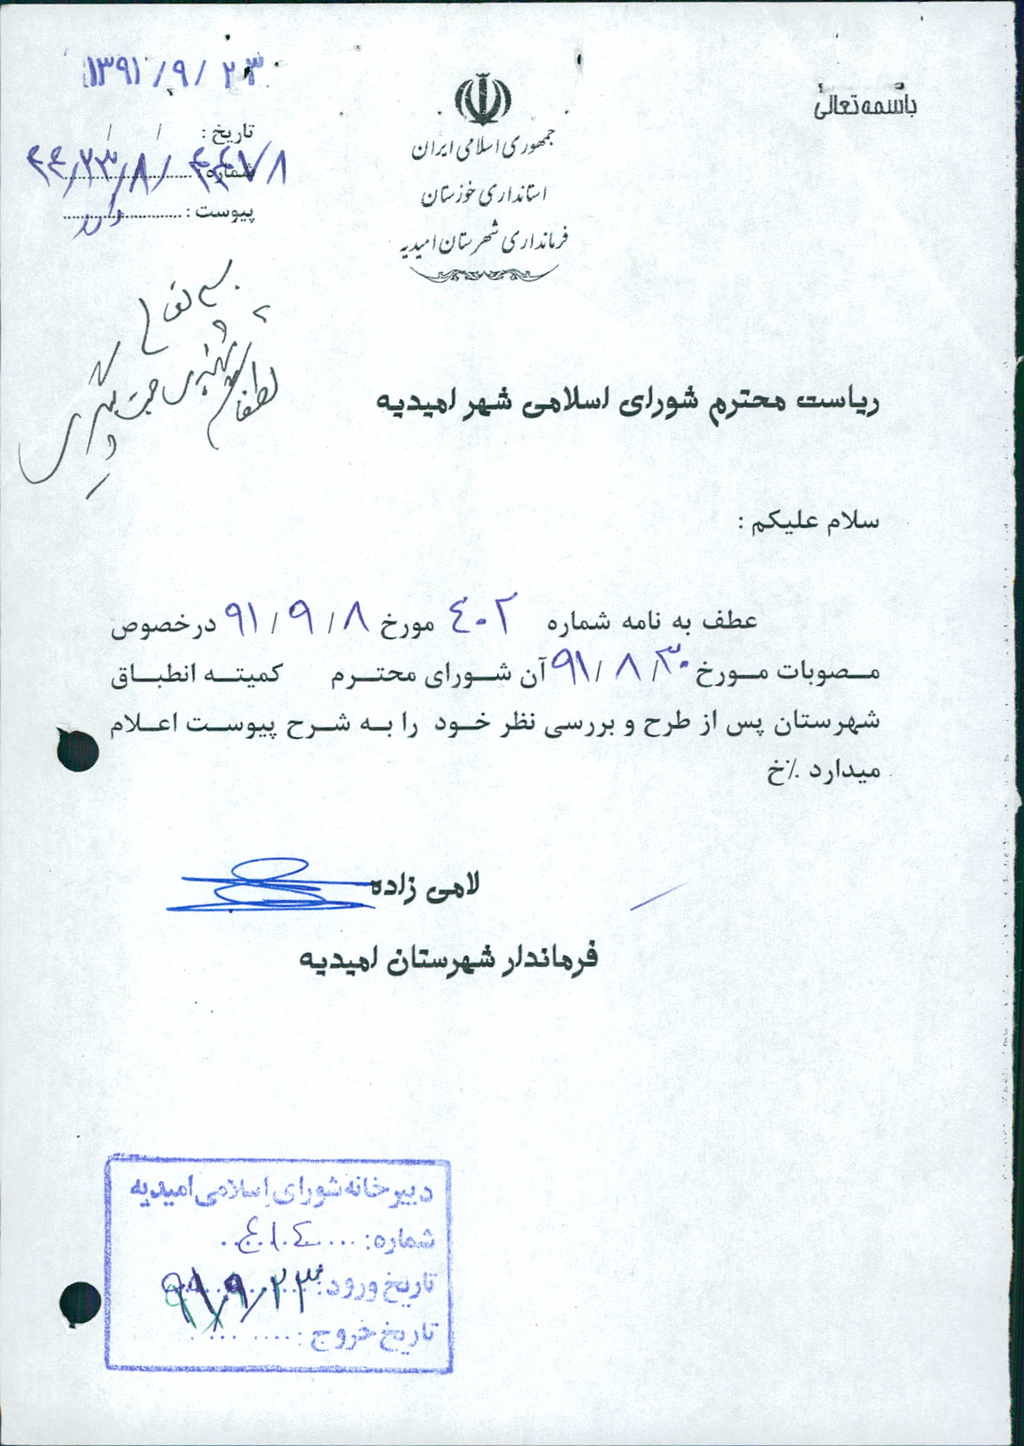 باسمه تعالی
جمهوری اسلامی ایران
استانداری خوزستان
فرمانداری شهرستان امیدیه
۱۳۹۱/۹/۲۳
تاریخ : / /
شماره :
پیوست :
ریاست محترم شورای اسلامی شهر امیدیه
سلام علیکم :
عطف به نامه شماره ۴۰۲ مورخ ۹۱/۹/۸ درخصوص
مصوبات مورخ ۹۱/۸/۳۰ آن شورای محترم کمیته انطباق
شهرستان پس از طرح و بررسی نظر خود را به شرح پیوست اعلام
میدارد ٪خ
لامی زاده
فرماندار شهرستان امیدیه
دبیرخانه شورای اسلامی امیدیه
شماره:
تاریخ ورود: ۹۱/۹/۲۳
تاریخ خروج :